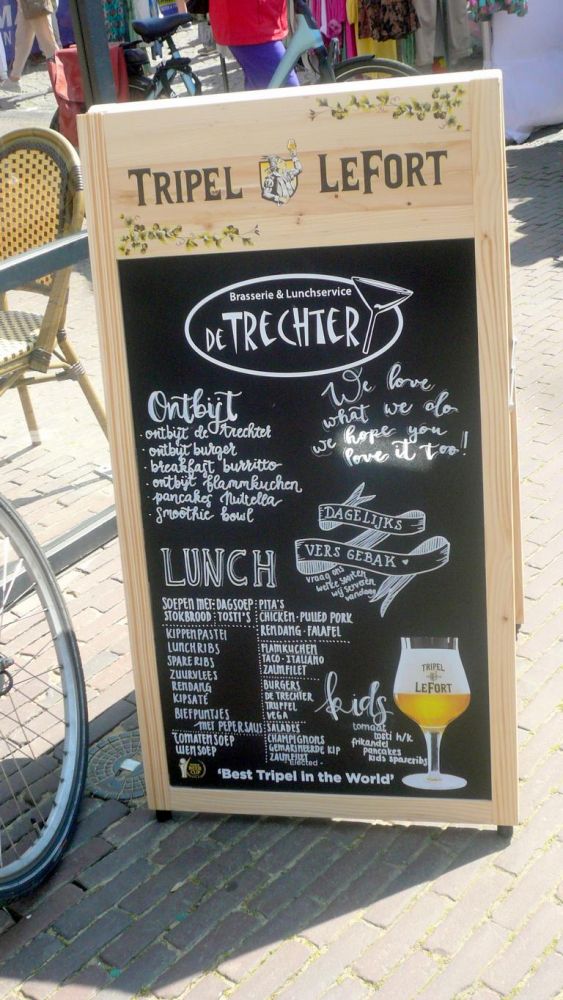 TRIPEL LEFORT
Brasserie & Lunchservice
DE TRECHTER
Ontbijt
· ontbijt de trechter
· ontbijt burger
· breakfast burritto
· ontbijt flammkuchen
· pancakes Nutella
· smoothie bowl
We love
what we do
we hope you
love it too!
DAGELIJKS
VERS GEBAK
vraag ons
welke soorten
wij serveren
vandaag
LUNCH
SOEPEN MET: DAGSOEP:
STOKBROOD: TOSTI'S
KIPPENPASTEI
LUNCHRIBS
SPARERIBS
ZUURVLEES
RENDANG
KIPSATÉ
BIEFPUNTJES
MET PEPERSAUS
TOMATENSOEP
UIENSOEP
PITA'S
CHICKEN · PULLED PORK
RENDANG · FALAFEL
FLAMKUCHEN
TACO · ITALIANO
ZALMFILET
BURGERS
DE TRECHTER
TRUFFEL
VEGA
SALADES
CHAMPIGNONS
GEMARINEERDE KIP
ZALMFILET
kids
tomaat
tosti h/k
frikandel
pancakes
kids spareribs
TRIPEL
LEFORT
- Elected -
'Best Tripel in the World'